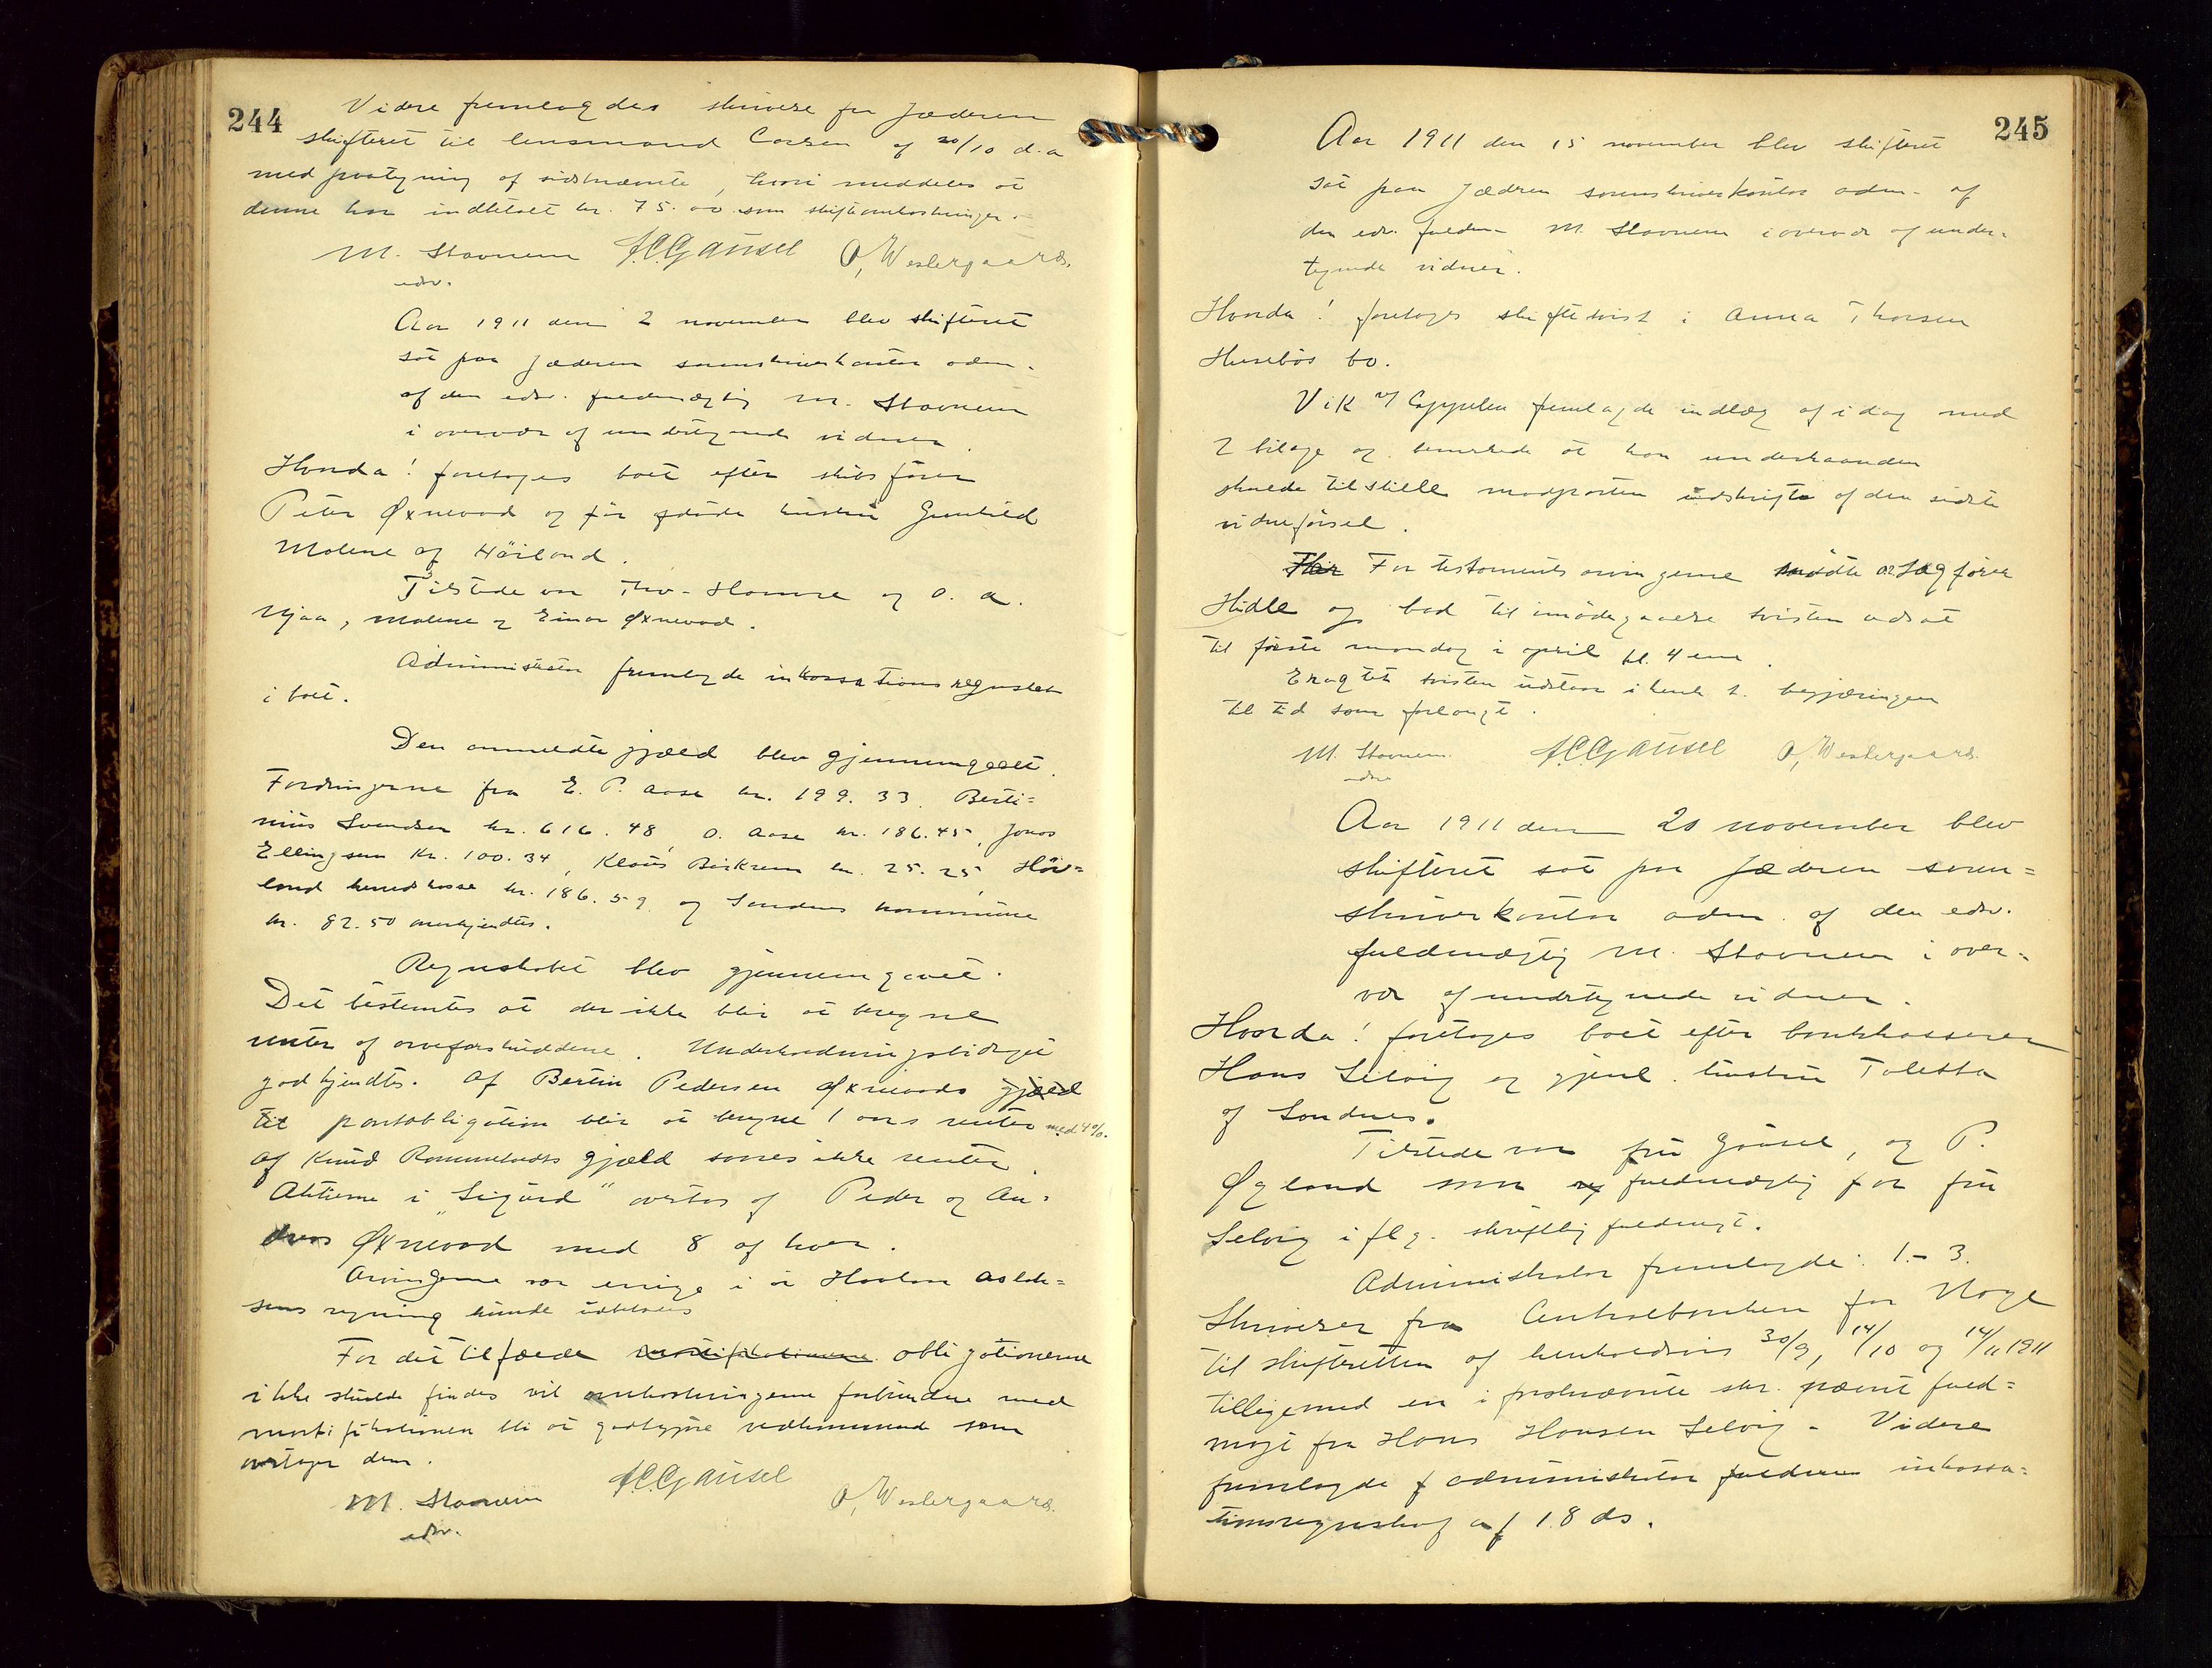 244
Videre fremlagdes skrivelse fra Jæderen
skifteret til lensmand Carsen af 20/10 d.a
med paategning af sidstnævnte, hvori meddeles at
denne har indbetalt kr. 75.00 som skifteomkostninger.
M. Stavnem A.C.Gausel O, Westergaard.
edsv.
Aar 1911 den 2 november blev skifteret
sat paa Jæderen sorenskriverkontor adm.
af den edsv. fuldmægtig M. Stavnem
i overvær af undertegnede vidner.
Hvorda! foretoges boet efter skibsfører
Peter Øxnevad og før afdøde hustru Gunhild
Malene af Höiland.
Tilstede var Thv. Hamre og O. A.
Njaa, Malene og Einar Øxnevad.
Administrator fremlagde inkassationsregnskab
i boet.
Den anmeldte gjæld blev gjennemgaaet.
Fordringerne fra E. P. Aase kr. 199.33. Berti=
nius Svendsen kr. 616.48, O. Aase kr. 186.45, Jonas
Ellingsen Kr. 100.34, Klaus Birkrem kr. 25.25, Höi=
land herredskasse kr. 186.59 og Sandnes kommune
kr. 82.50 anerkjendtes.
Regnskabet blev gjennemgaaet.
Det bestemtes at der ikke blir at beregne
renter af arveforskuddene. Underholdningsbidraget
godkjendtes. Af Bertin Pedersen Øxnevads gjæld
til pantobligation blir at beregne 1 aars renter med 4%.
Af Knud Rommetvedts gjæld svares ikke renter.
Aktierne i "Sigurd" overtas af Peder og An=
dreas Øxnevad med 8 af hver.
Arvingerne var enige i at Haakon Aslak=
sens regning kunde udbetales
For det tilfælde mortifikationerne obligationerne
ikke skulde findes vil omkostningerne forbundne med
mortifikationen bli at godtgjøre vedkommende som
overtager dem.
M. Stavnem A.C.Gausel O, Westergaard.
edsv.
245
Aar 1911 den 15 november blev skifteret
sat paa Jædren sorenskriverkontor adm. af
den edsv. fuldm. M. Stavnem i overvær af under=
tegnede vidner.
Hvorda! foretoges skiftetvist i Anna Thorsen
Husebös bo.
Vik v/ Cappelen fremlagde indlæg af idag med
2 bilage og bemerkede at han underhaanden
skulde tilstille modparten udskrift af den sidste
vidneførsel.
For testamentsarvingerne mødte o.r.sagfører
Hidle og bad til imødegaaelse tvisten udsat
til første mandag i april kl. 4 em.
Eragtet tvisten udstaar i henh. t. begjæringen
til tid som forlangt.
M. Stavnem. A.C.Gausel O, Westergaard.
edsv
Aar 1911 den 20 november blev
skifteret sat paa Jæderen soren=
skriverkontor adm. af den edsv.
fuldmægtig M. Stavnem i over=
vær af undertegnede vidner.
Hvorda! foretoges boet efter bankkasserer
Hans Selvig og gjenl. hustru Toletta
af Sandnes.
Tilstede var fru Gausel, og P.
Øgland som fuldmægtig for fru
Selvig iflg. skriftlig fuldmagt.
Administrator fremlagde: 1.- 3.
Skrivelser fra Centralbanken for Norge
til skifteretten af henholdsvis 30/9, 14/10 og 14/11 1911
tilligemed en i førstnævnte skr. nævnt fuld=
magt fra Hans Hansen Selvig. Videre
fremlagde administrator inkassa=
tionsregnskap af 18 ds.